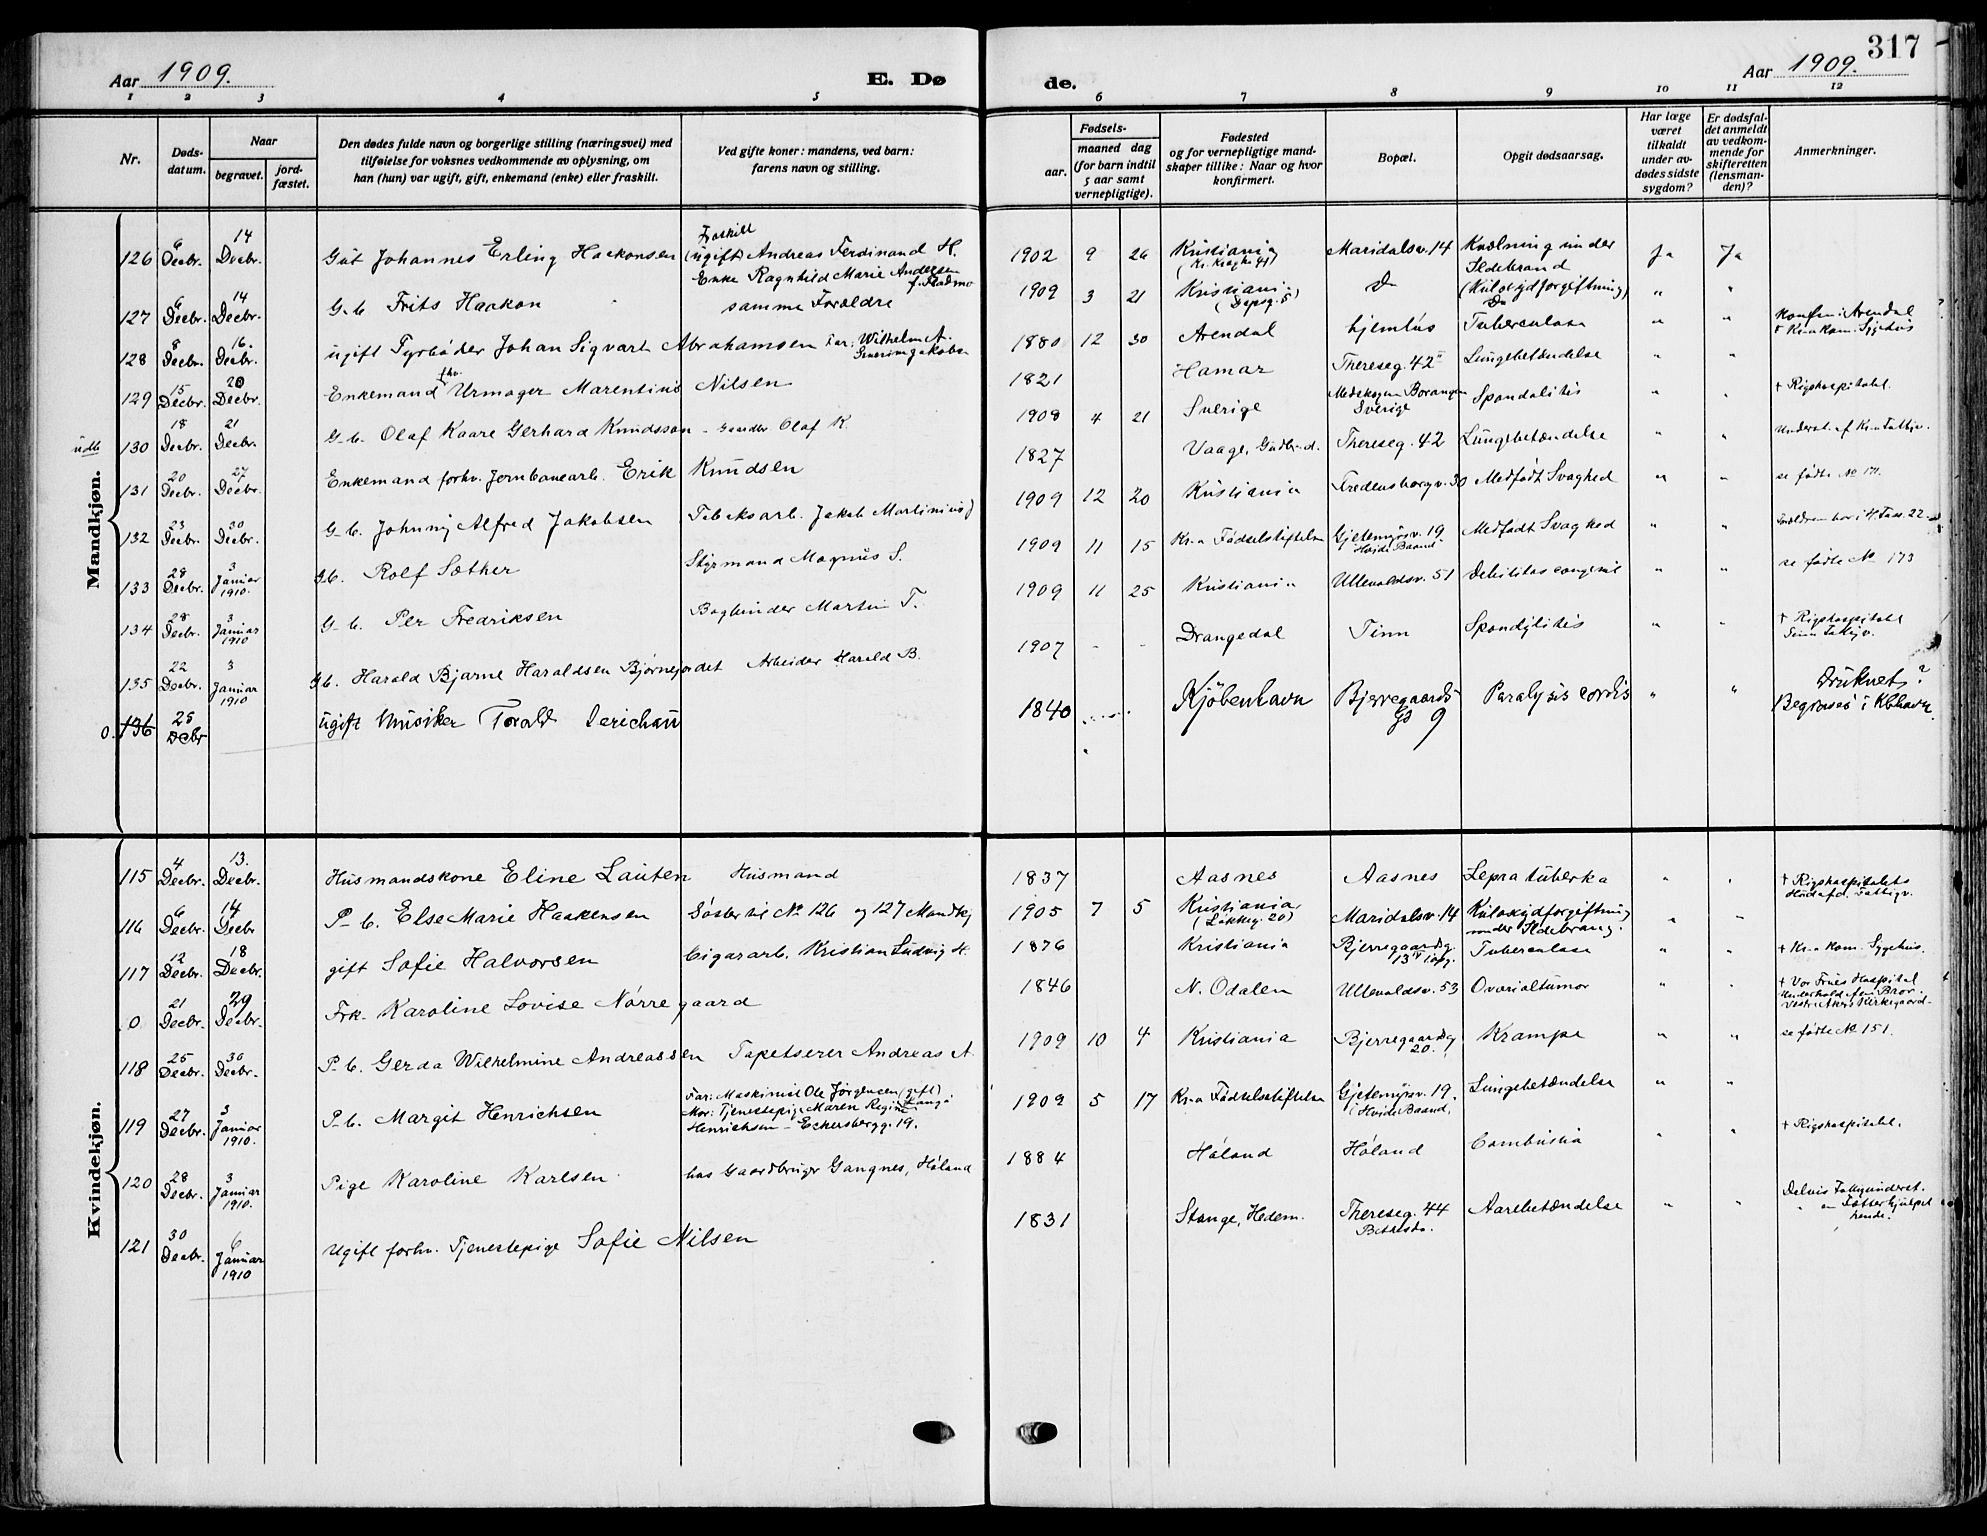 317
Aar 1909. E. Dø de. Aar 1909.
1 2 3 4 5 6 7 8 9 10 11 12
Nr. Døds-datum. Naar begravet. jord-fæstet. Den dødes fulde navn og borgerlige stilling (næringsvei) med tilføielse for voksnes vedkommende av oplysning, om han (hun) var ugift, gift, enkemand (enke) eller fraskilt. Ved gifte koner: mandens, ved barn: farens navn og stilling. Fødsels- aar. maaned dag (for barn indtil 5 aar samt vernepligtige). Fødested og for vernepligtige mandskaper tillike: Naar og hvor konfirmert. Bopæl. Opgit dødsaarsag. Har læge været tilkaldt under avdødes sidste sygdom? Er dødsfaldet anmeldt av vedkommende for skifteretten (lensmanden)? Anmerkninger.
Mandkjøn.
126 6 Decbr. 14 Decbr. Gut Johannes Erling Haakonsen Fraskilt (ugift) Andreas Ferdinand H. Enke Ragnhild Marie Andersen 1902 9 26 Kristiania Maridalsv. 14 Kvælning under Ildebrand (Kulosydforgiftning) Ja Ja
127 6 Decbr. 14 Decbr. G-b. Frits Haakon samme Forældre 1909 3 21 Kristiania Do Do " "
128 8 Decbr. 16. Decbr. ugift Fyrbøder Johan Sigvart Abrahamsen Far: Wilhelm A. 1880 12 30 Arendal hjemløs Tuberculose " " Konfr. i Arendal † Kra kom. Sygehus
129 15 Decbr. 20 Decbr. Enkemand fhv. Urmager Marentius Nilsen 1821 Hamar Thereseg. 42 II Lungebetændelse " "
udb 130 18 Decbr. 21 Decbr. G-b. Olaf Kaare Gerhard Knudsson - Gaardbr Olaf K. 1908 4 21 Sverige Sverige Spondalitis " " † Rigshospitalet.
131 20 Decbr. 27 Decbr. Enkemand forhv. Jernbanearb. Erik Knudsen 1827 Vaage, Gudbr.d. Thereseg. 42 Lungebetændelse " " Underst. af Kra Fattigv.
132 23 Decbr. 30 Decbr. G-b. Johnny Alfred Jakobsen Fabeksarb. Jakob Martinius J 1909 12 20 Kristiania Fredensborgv. 30 Medfødt Svaghed " " se fødte No 171.
133 28 Decbr. 3 Januar 1910. Gb. Rolf Sæther Styrmand Magnus S. 1909 11 15 Kr.a Fødselsstiftelse Gjetemyrsv. 19 Hvide Baand Medfødt Svaghed " "
134 28 Decbr. 3 Januar 1910 G-b. Per Fredriksen Bogbinder Martin F. 1909 11 25 Kristiania Ullevoldsv. 51 Debilitas congenit " " se fødte No 173
135 22 Decbr. 3 Januar 1910 Gb. Harald Bjarne Haraldsen Bjørnejordet Arbeider Harald B. 1907 - - Drangedal Tinn Spondylitis " " † Rigshospitalet Tinn Fattigv.
0. 136 25 Decbr ugift Musiker Torald Jerichau 1840 Kjøbenhavn Bjerregaards Gd 9 Paralysis cordis " " Druknet? Begraves i Kbhavn.
Kvindekjøn.
115 4 Decbr. 13. Decbr. Husmandskone Eline Lauten Husmand 1837 Aasnes Aasnes Lepra tuberka " " † Rigshospitalets Hudafd. Fattigv.
116 6 Decbr. 14 Decbr P-b. Else Marie Haakensen Søster til No 126 og 127 Mandkj 1905 7 5 Kristiania (Løkkeg. 20) Maridalsv. 14 Kulosydforgiftning under Ildebrand. " "
117 12 Decbr. 18 Decbr. gift Sofie Halvorsen Cigararb. Kristian Ludvig H. 1876 Kristiania Bjerregaardsg. 13 Tuberculose " " † Kr.a Kom. Sygehus.
0 21 Decbr. 29 Decbr. Frk. Karoline Lovise Nørregaard 1846 N. Odalen Ullevoldsv. 53 Ovarialtumor " " † Vor Frues Hospital Underhold af en Bror. Vestre Akers Kirkegaard.
118 25 Decbr. 30 Decbr. P-b. Gerda Wilhelmine Andreassen Tapetserer Andreas A. 1909 10 4 Kristiania Bjerregaardsg 20. Krampe " " se fødte No 151.
119 27 Decbr. 3 Januar 1910. P-b. Margit Henrichsen Far: Maskinist Ole Jørgensen (gift) Mor: Tjenestepige Maren Regine Langø Henrichsen - Eckersbergg. 19. 1909 5 17 Kr.a Fødselsstiftelse Gjetemyrsv. 19. (Hvide Baand. Lungebetændelse " "
120 28 Decbr. 3 Januar 1910. Pige Karoline Karlsen. hos Gaardbruger Gangnes, Høland 1884 Høland Høland Combustio " " † Rigshospitalet.
121 30 Decbr. 6 Januar 1910 Ugift forhv. Tjenestepige Sofie Nilsen 1831 Stange, Hedem. Thereseg. 44 Betesda. Aarebetændelse " " Delvis Fattigunderst. en Datter hjulpet hende.